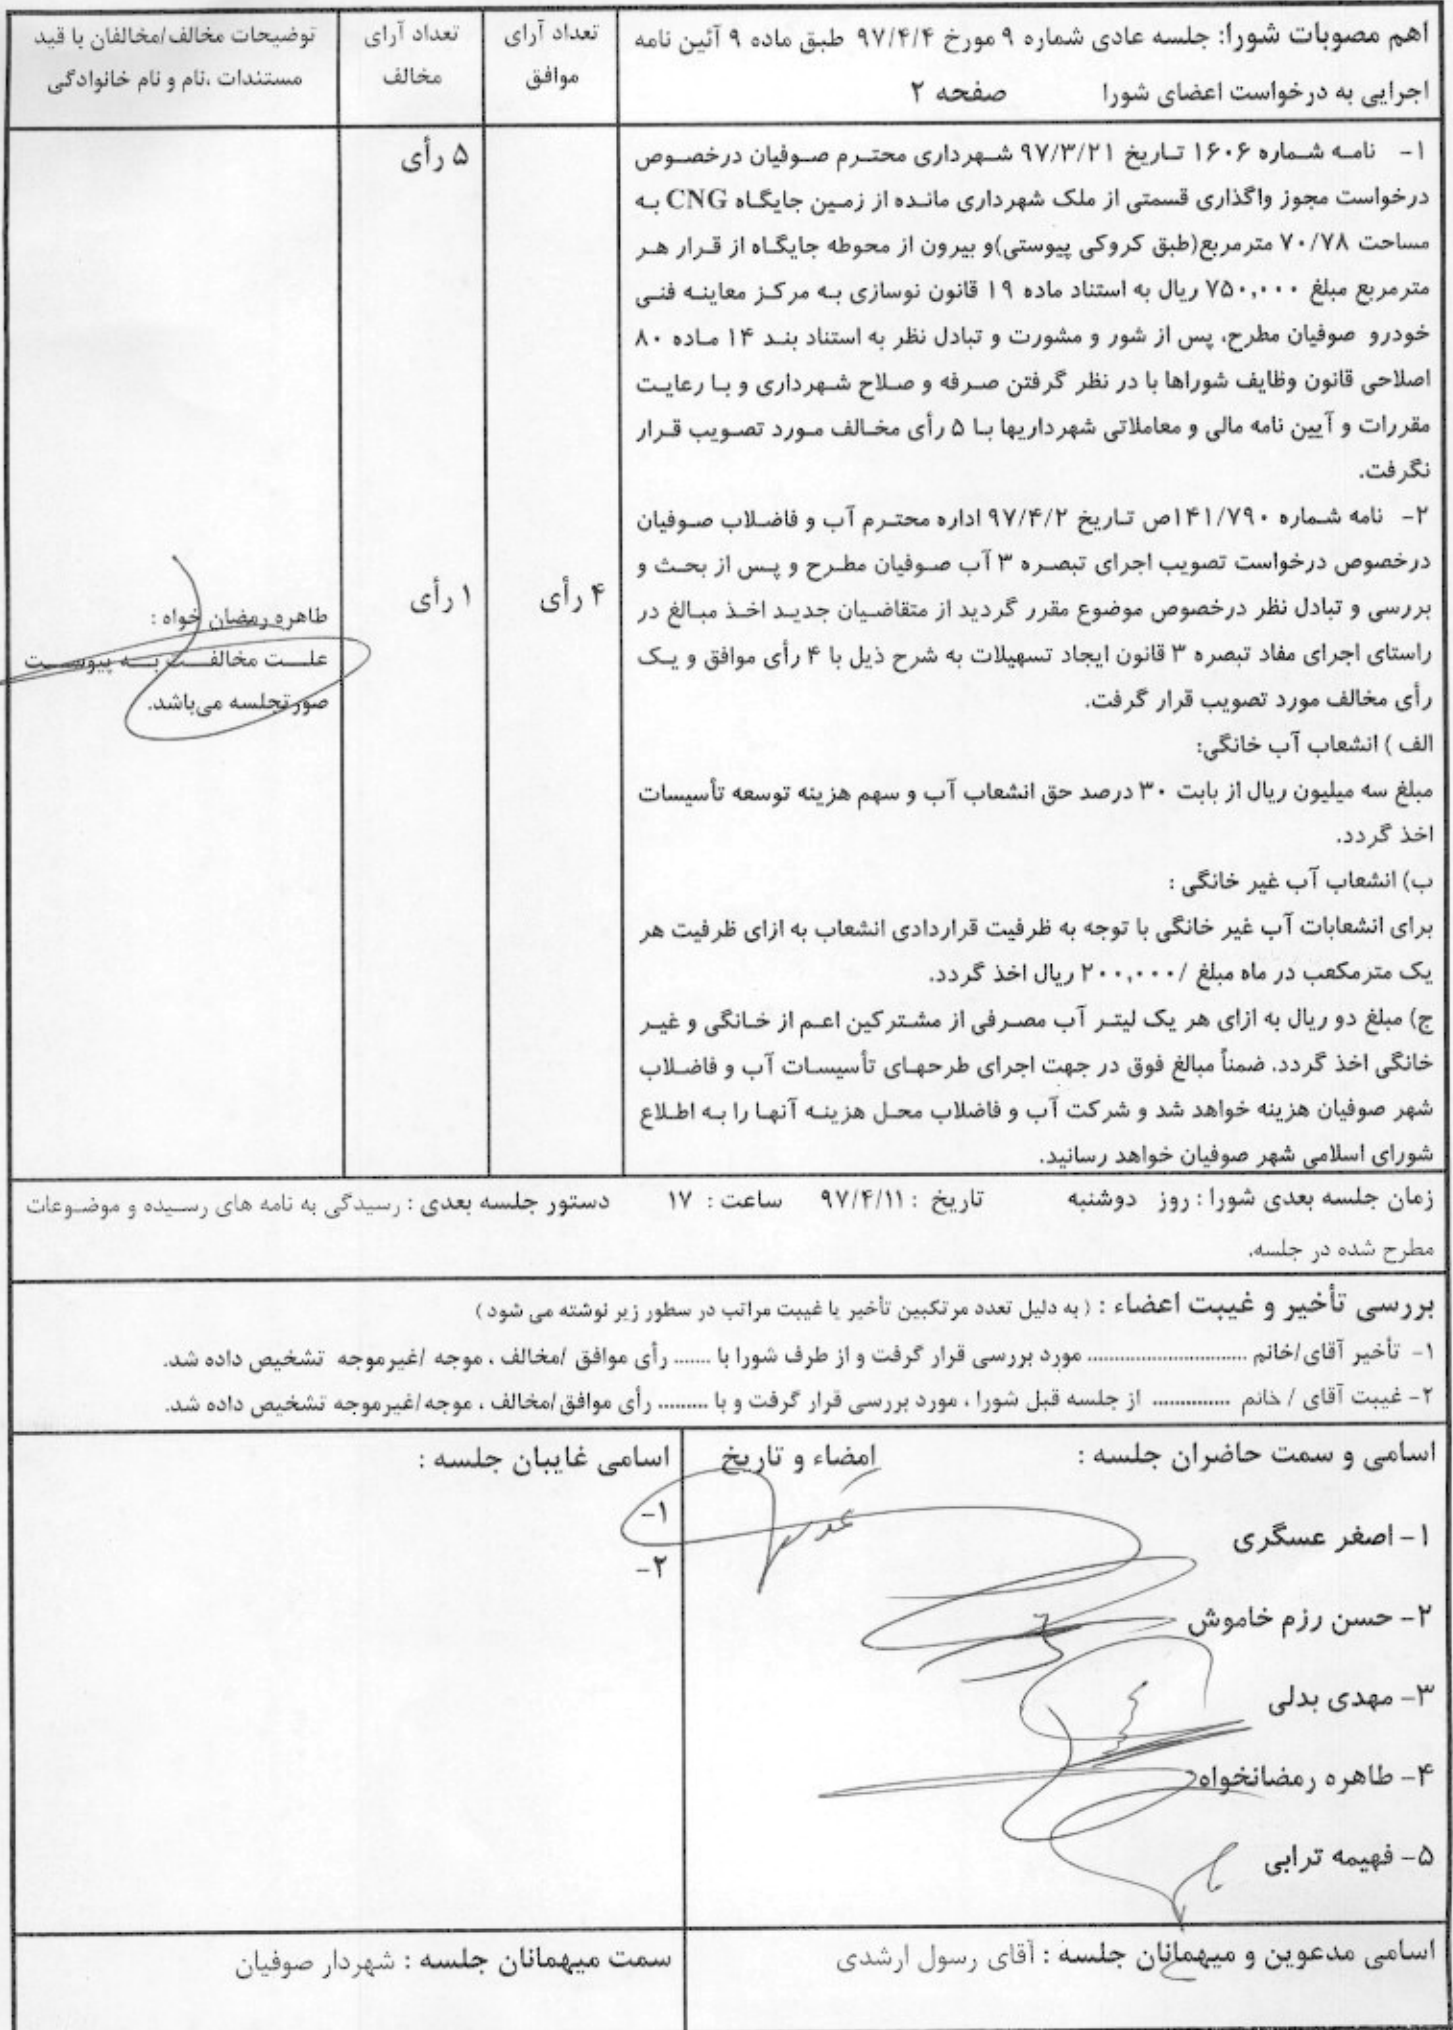 اهم مصوبات شورا: جلسه عادی شماره ۹ مورخ ۹۷/۴/۴ طبق ماده ۹ آئین نامه
اجرایی به درخواست اعضای شورا صفحه ۲
تعداد آرای
موافق
تعداد آرای
مخالف
توضیحات مخالف/مخالفان با قید
مستندات ،نام و نام خانوادگی
۱- نامه شماره ۱۶۰۶ تاریخ ۹۷/۳/۲۱ شهرداری محترم صوفیان درخصوص
درخواست مجوز واگذاری قسمتی از ملک شهرداری مانده از زمین جایگاه CNG به
مساحت ۷۰/۷۸ مترمربع(طبق کروکی پیوستی)و بیرون از محوطه جایگاه از قرار هر
مترمربع مبلغ ۷۵۰,۰۰۰ ریال به استناد ماده ۱۹ قانون نوسازی به مرکز معاینه فنی
خودرو صوفیان مطرح، پس از شور و مشورت و تبادل نظر به استناد بند ۱۴ ماده ۸۰
اصلاحی قانون وظایف شوراها با در نظر گرفتن صرفه و صلاح شهرداری و با رعایت
مقررات و آیین نامه مالی و معاملاتی شهرداریها با ۵ رأی مخالف مورد تصویب قرار
نگرفت.
۵ رأی
۲- نامه شماره ۱۴۱/۷۹۰ص تاریخ ۹۷/۴/۲ اداره محترم آب و فاضلاب صوفیان
درخصوص درخواست تصویب اجرای تبصره ۳ آب صوفیان مطرح و پس از بحث و
بررسی و تبادل نظر درخصوص موضوع مقرر گردید از متقاضیان جدید اخذ مبالغ در
راستای اجرای مفاد تبصره ۳ قانون ایجاد تسهیلات به شرح ذیل با ۴ رأی موافق و یک
رأی مخالف مورد تصویب قرار گرفت.
۴ رأی
۱ رأی
طاهره رمضان خواه :
علت مخالفت به پیوست
صورتجلسه می‌باشد.
الف ) انشعاب آب خانگی:
مبلغ سه میلیون ریال از بابت ۳۰ درصد حق انشعاب آب و سهم هزینه توسعه تأسیسات
اخذ گردد.
ب) انشعاب آب غیر خانگی :
برای انشعابات آب غیر خانگی با توجه به ظرفیت قراردادی انشعاب به ازای ظرفیت هر
یک مترمکعب در ماه مبلغ /۲۰۰,۰۰۰ ریال اخذ گردد.
ج) مبلغ دو ریال به ازای هر یک لیتر آب مصرفی از مشترکین اعم از خانگی و غیر
خانگی اخذ گردد. ضمناً مبالغ فوق در جهت اجرای طرحهای تأسیسات آب و فاضلاب
شهر صوفیان هزینه خواهد شد و شرکت آب و فاضلاب محل هزینه آنها را به اطلاع
شورای اسلامی شهر صوفیان خواهد رسانید.
زمان جلسه بعدی شورا : روز دوشنبه تاریخ : ۹۷/۴/۱۱ ساعت : ۱۷ دستور جلسه بعدی : رسیدگی به نامه های رسیده و موضوعات
مطرح شده در جلسه.
بررسی تأخیر و غیبت اعضاء : ( به دلیل تعدد مرتکبین تأخیر یا غیبت مراتب در سطور زیر نوشته می شود )
۱- تأخیر آقای/خانم ............................. مورد بررسی قرار گرفت و از طرف شورا با ....... رأی موافق /مخالف ، موجه /غیرموجه تشخیص داده شد.
۲- غیبت آقای / خانم .............. از جلسه قبل شورا ، مورد بررسی قرار گرفت و با ......... رأی موافق/مخالف ، موجه/غیرموجه تشخیص داده شد.
اسامی و سمت حاضران جلسه : امضاء و تاریخ
۱- اصغر عسگری
۲- حسن رزم خاموش
۳- مهدی بدلی
۴- طاهره رمضانخواه
۵- فهیمه ترابی
اسامی غایبان جلسه :
۱-
۲-
اسامی مدعوین و میهمانان جلسه : آقای رسول ارشدی
سمت میهمانان جلسه : شهردار صوفیان